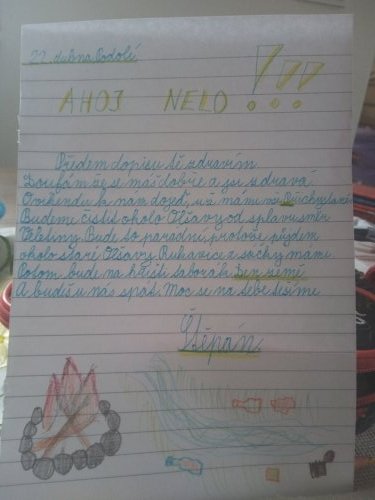 22. dubna Podolí
AHOJ NELO!!!
Předem dopisu tě zdravím.
Doufám že se máš dobře a jsi zdravá.
O víkendu k nám dojď, už mám
Budeme čistit okolo Olšavy od splavu směr
Veletiny. Bude to parádní, protože půjdem
okolo staré Olšavy. Rukavice a sáčky máme.
Potom bude na hřišti táborák Den země
A budeš u nás spát. Moc se na tebe těšíme
Štěpán